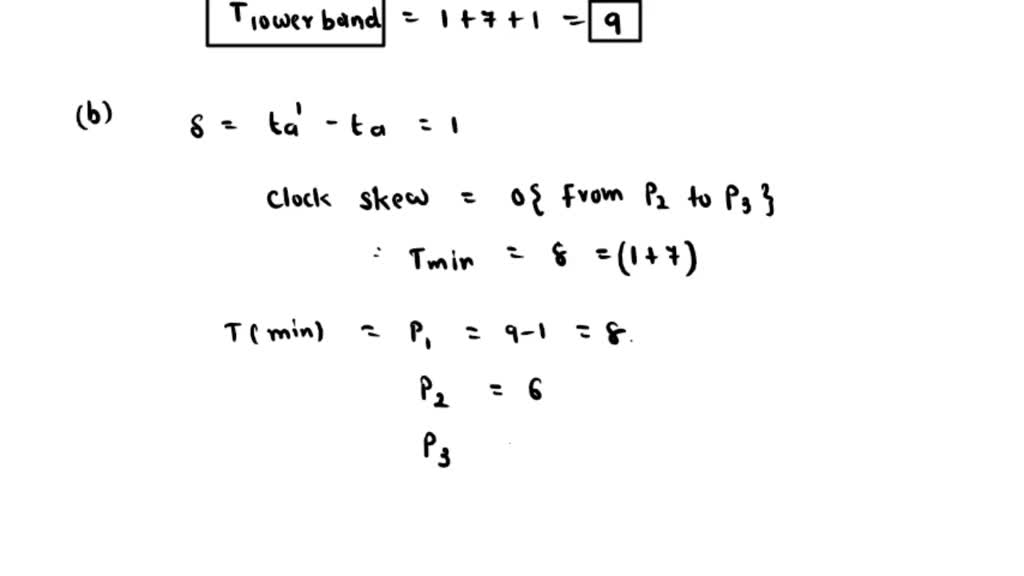 Tlower band = 1 + 7 + 1 = 9
(b) δ = ta' - ta = 1
Clock skew = 0{ from P2 to P3 }
∴ Tmin = 8 = (1+7)
T(min) = P1 = 9-1 = 8.
P2 = 6
P3